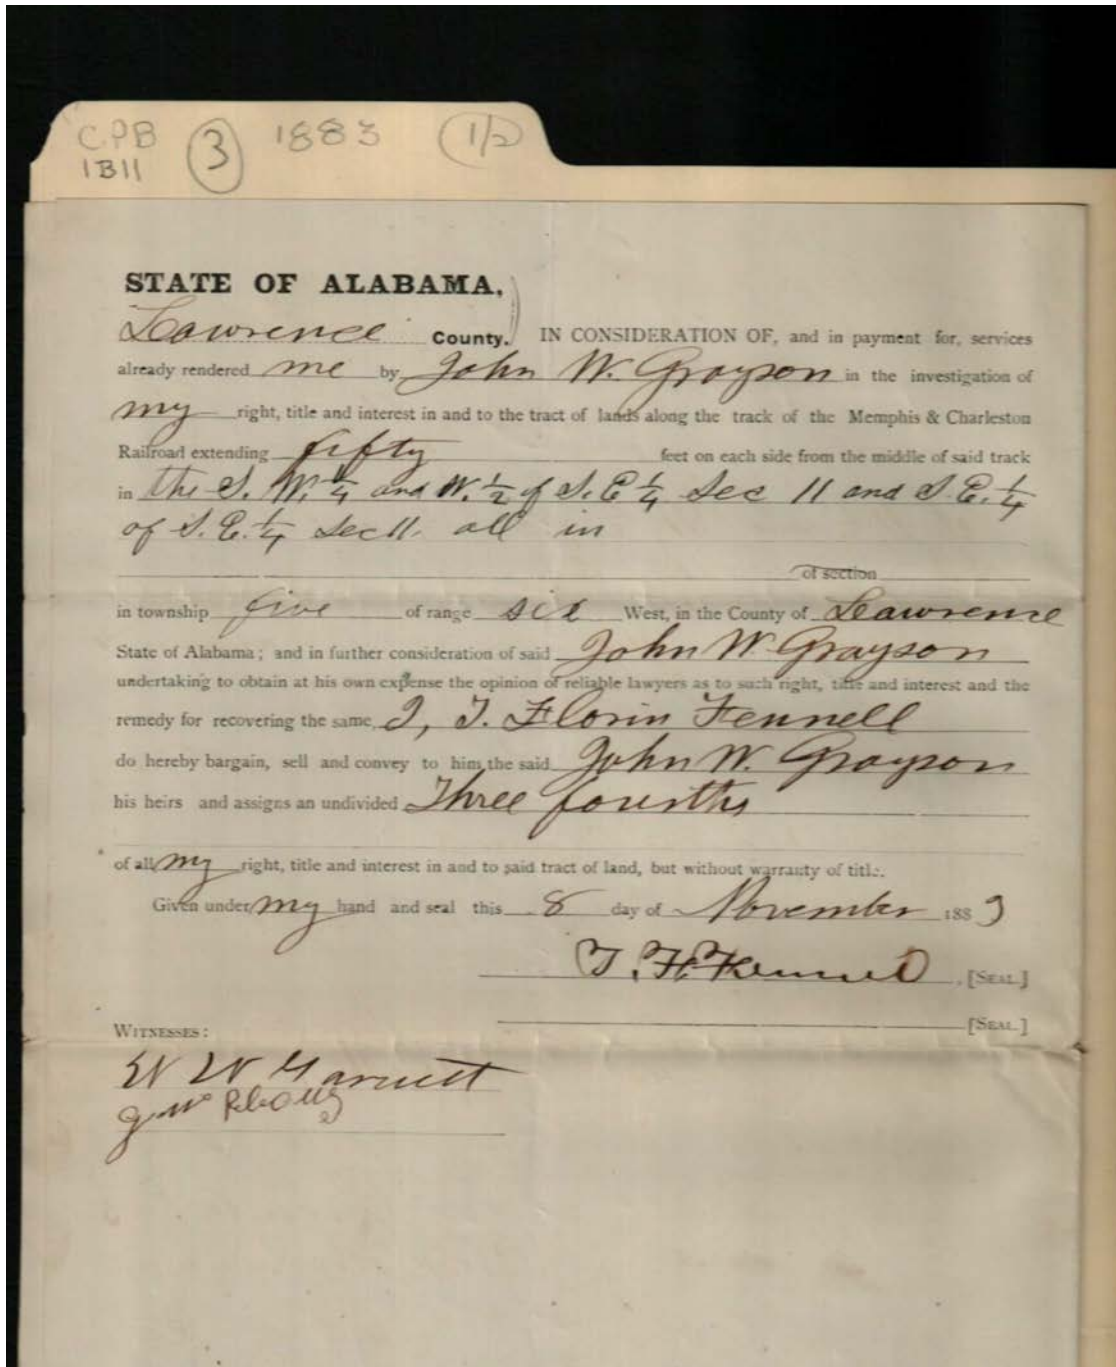 CPB 3 1883 1/2
1B11
STATE OF ALABAMA,
Lawrence County. IN CONSIDERATION OF, and in payment for, services
already rendered me by John W. Grayson in the investigation of
my right, title and interest in and to the tract of lands along the track of the Memphis & Charleston
Railroad extending fifty feet on each side from the middle of said track
in the S. W. 1/4 and W. 1/2 of S. E 1/4 Sec 11 and S. E. 1/4
of S. E. 1/4 Sec 11. all in
of section
in township five of range six West, in the County of Lawrence
State of Alabama; and in further consideration of said John W Grayson
undertaking to obtain at his own expense the opinion of reliable lawyers as to such right, title and interest and the
remedy for recovering the same I, T. Florin Fennell
do hereby bargain, sell and convey to him, the said John W. Grayson
his heirs and assigns an undivided Three fourths
of all my right, title and interest in and to said tract of land, but without warranty of title.
Given under my hand and seal this 8 day of November 1883
T. F. Fennell [SEAL.]
[SEAL.]
WITNESSES:
W W Garnett